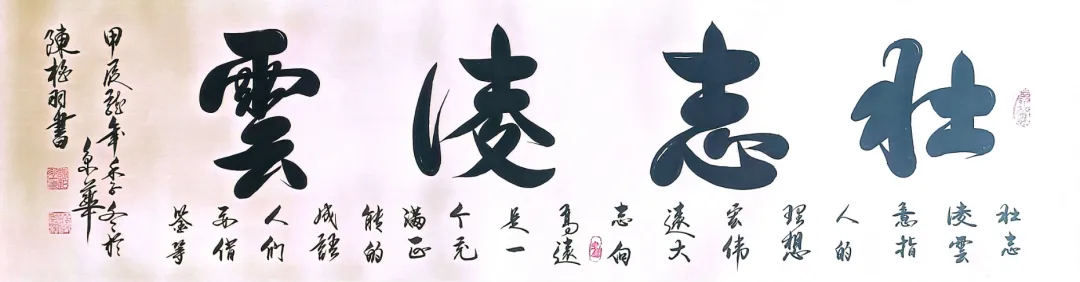 壮志凌雲
壮志
凌雲
意指
人的
理想
宏伟
遠大
志向
高遠
是一
个充
满正
能的
成語
人们
借
鉴等
甲辰龍年季冬於京華
陳羽書